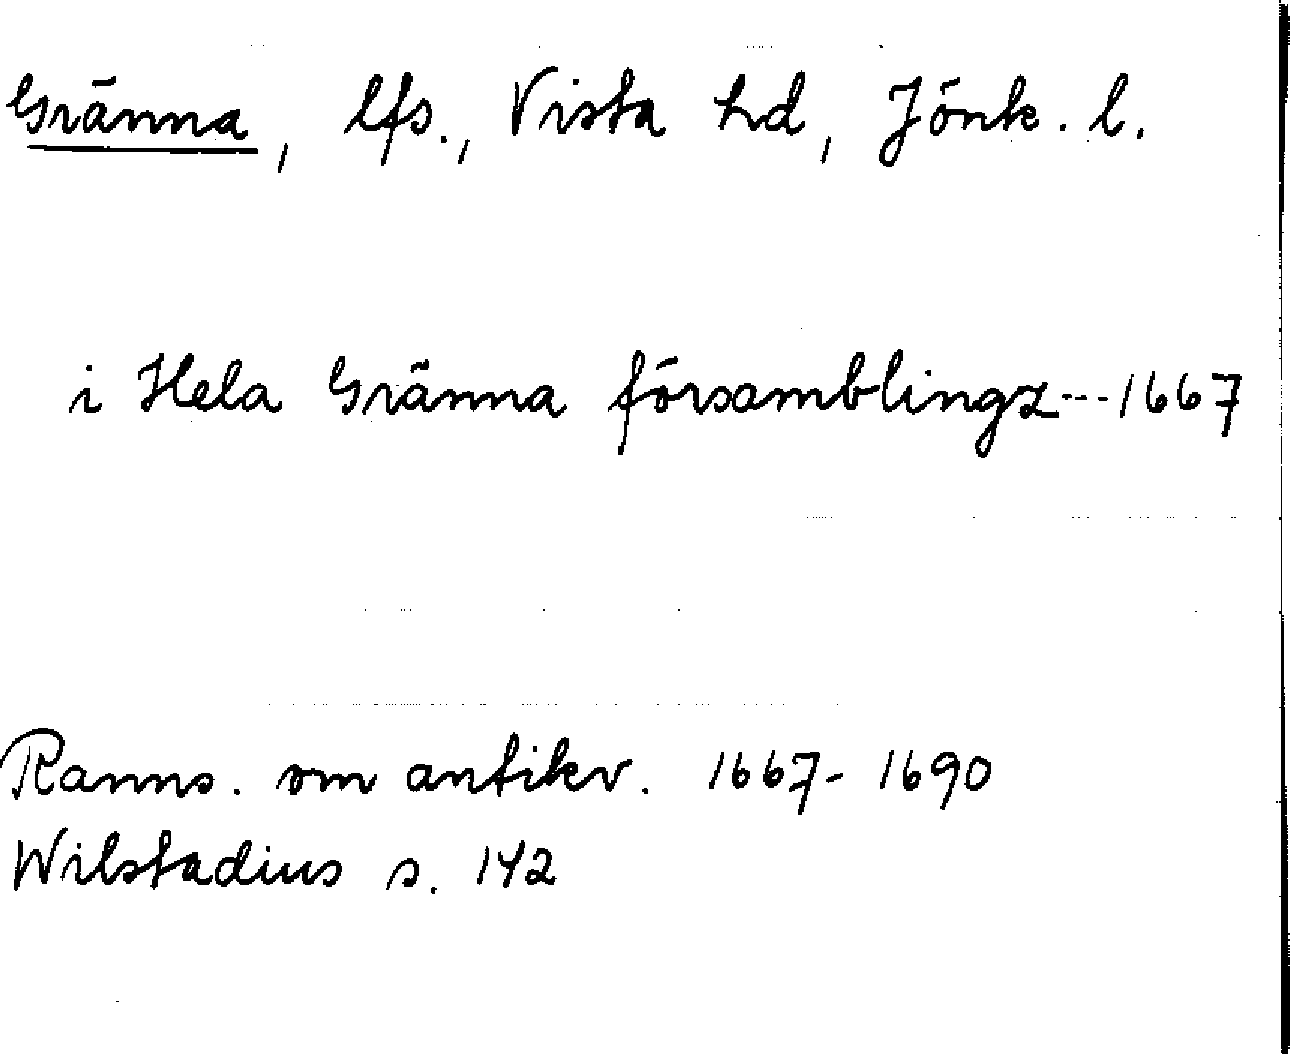 Gränna, lfs., Vista hd, Jönk. l.
i Hela Gränna församblingz---1667
Ranns. om antikv. 1667-1690
Wilstadius s. 142